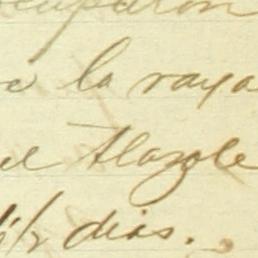 ocuparon
la raya
el tlazole
1/2 dias.